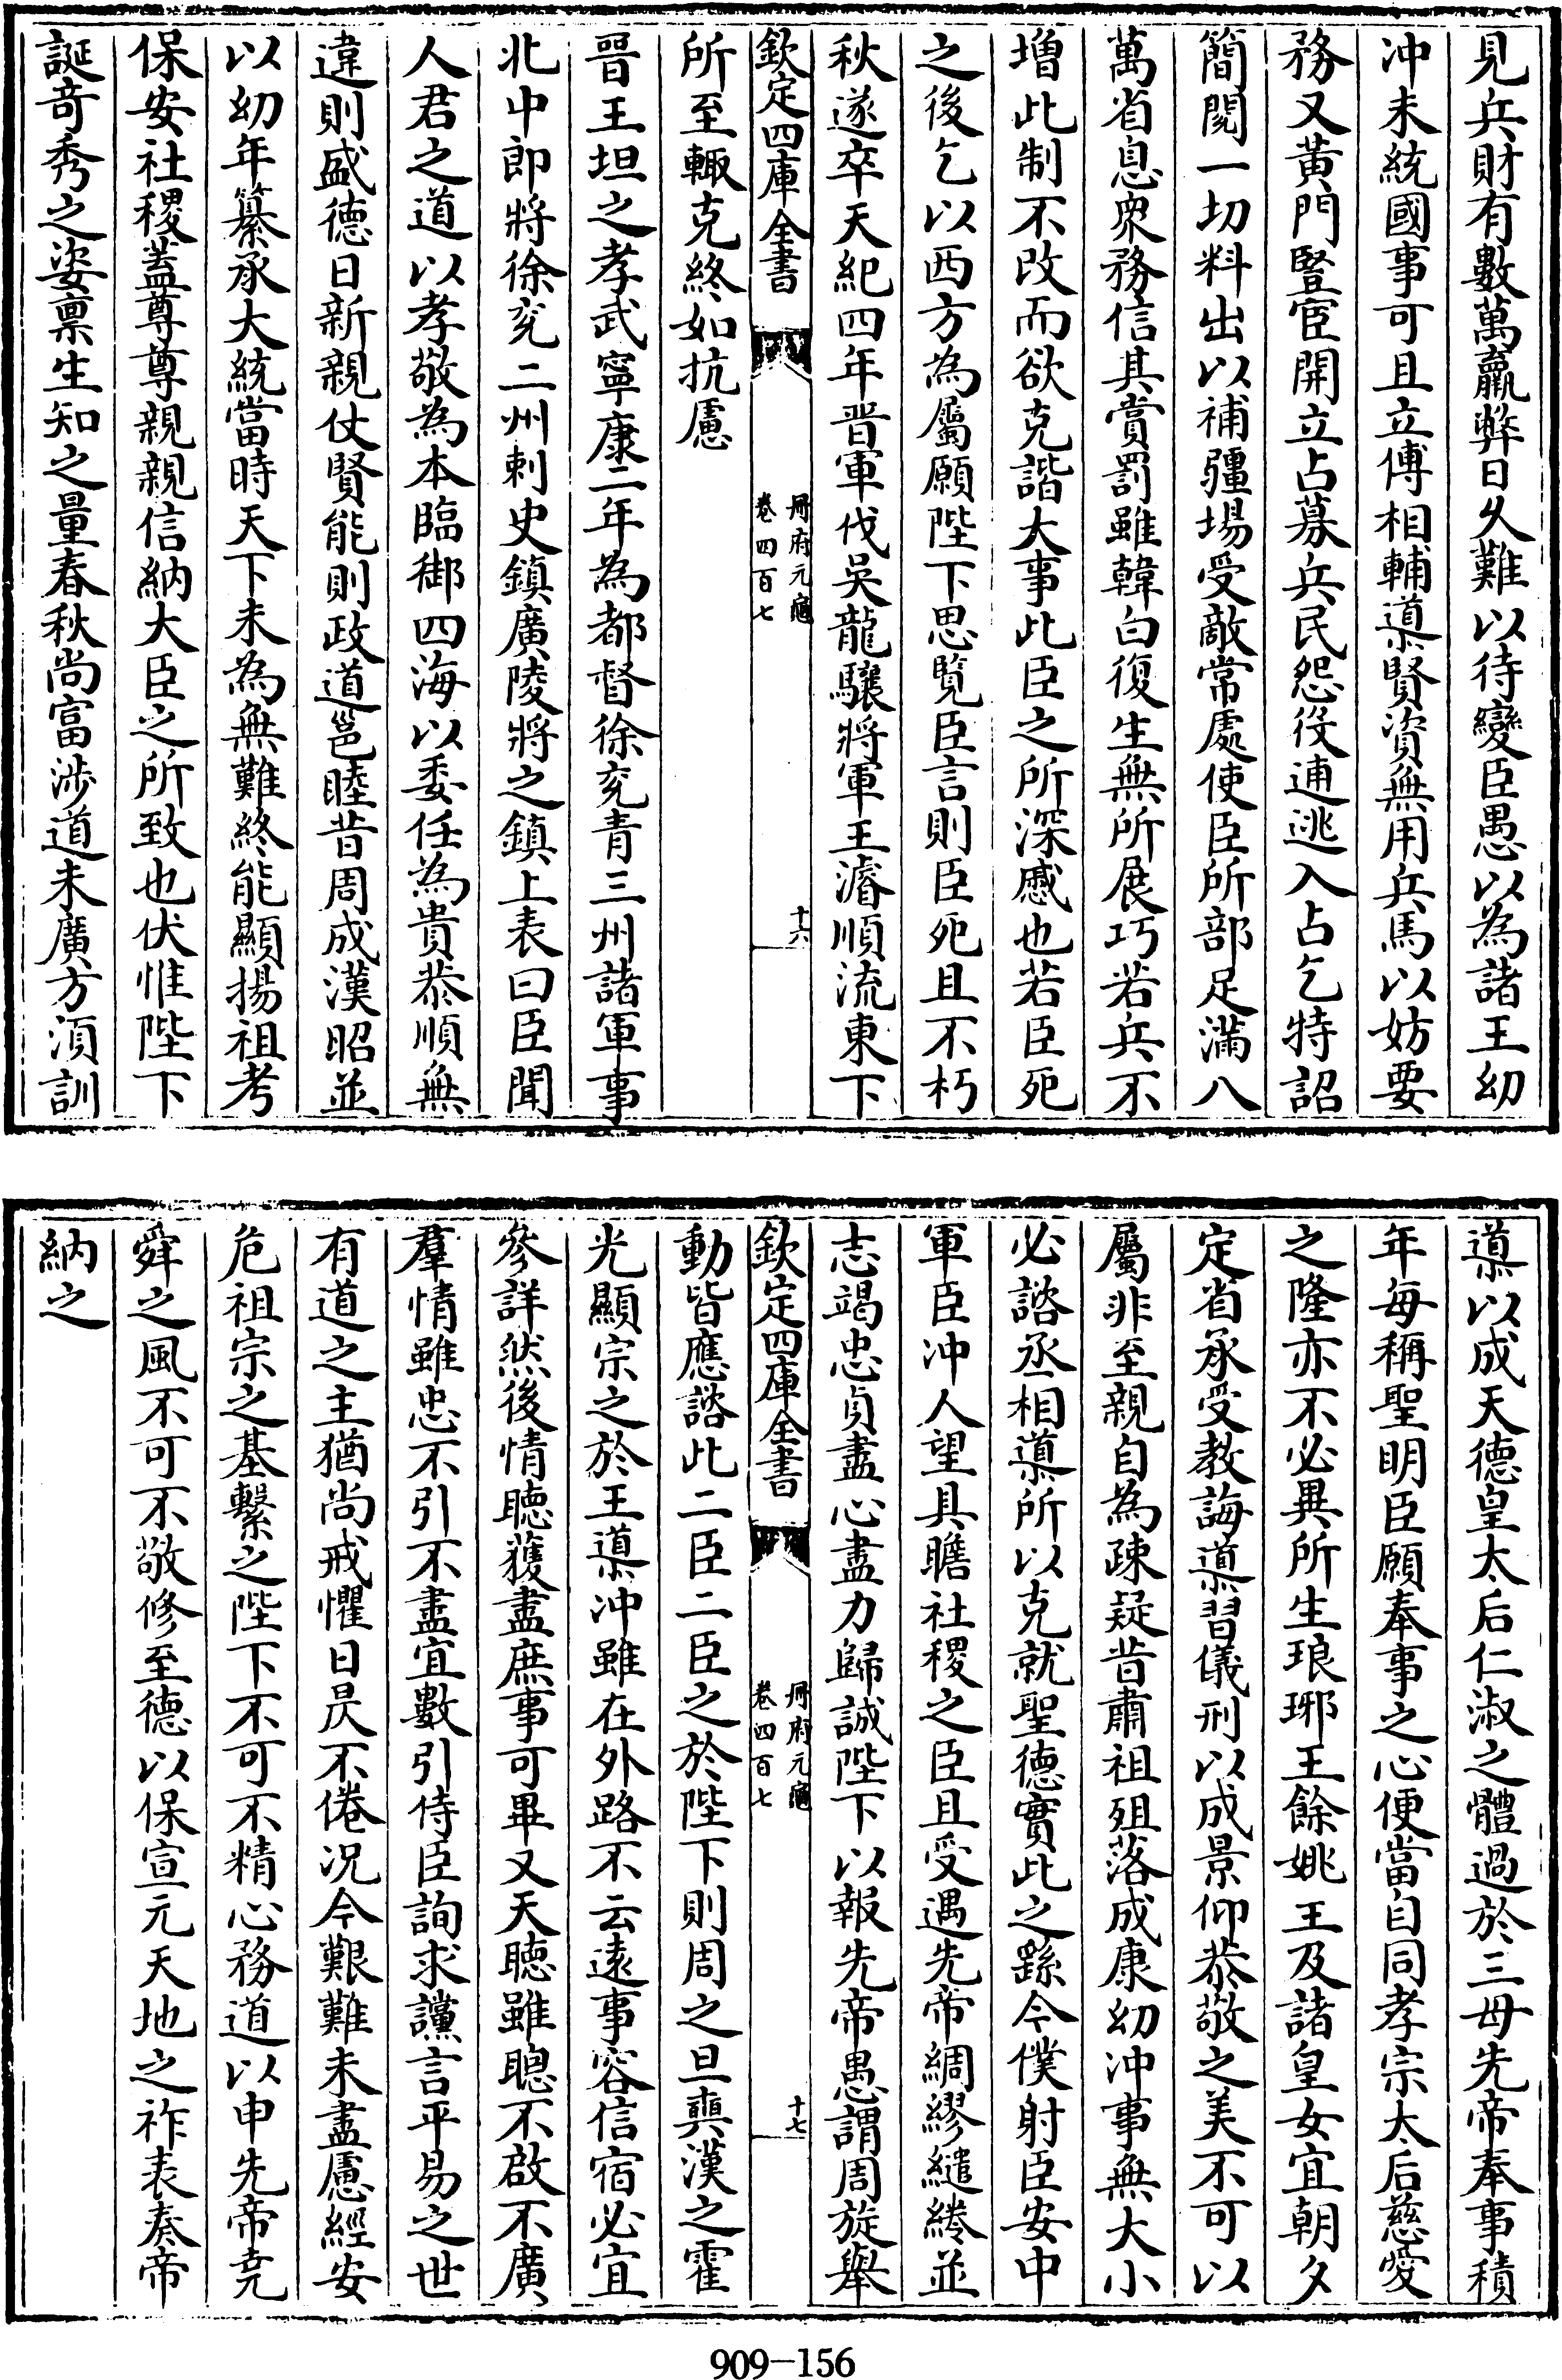 見兵財有數萬羸弊日久難以待變臣愚以為諸王幼
冲未統國事可且立傅相輔導賢資無用兵馬以妨要
務又黄門豎宦開立占募兵民怨役逋逃入占乞特詔
簡閲一切料出以補疆場受敵常處使臣所部足滿八
萬省息衆務信其賞罰雖韓白復生無所展巧若兵不
増此制不改而欲克諧大事此臣之所深慼也若臣死
之後乞以西方為屬願陛下思覽臣言則臣死且不朽
秋遂卒天紀四年晋軍伐吳龍驤將軍王濬順流東下
欽定四庫全書
冊府元龜
卷四百七
十六
所至輙克終如抗慮
晉王坦之孝武寧康二年為都督徐兖青三州諸軍事
北中郎將徐兖二州刺史鎮廣陵將之鎮上表曰臣聞
人君之道以孝敬為本臨御四海以委任為貴恭順無
違則盛德日新親仗賢能則政道邕睦昔周成漢昭並
以幼年纂承大統當時天下未為無難終能顯揚祖考
保安社稷蓋尊尊親親信納大臣之所致也伏惟陛下
誕竒秀之姿禀生知之量春秋尚富渉道未廣方湏訓
導以成天德皇太后仁淑之體過於三母先帝奉事積
年毎稱聖明臣願奉事之心便當自同孝宗太后慈愛
之隆亦不必異所生琅琊王餘姚王及諸皇女宜朝夕
定省承受教誨導習儀刑以成景仰恭敬之美不可以
屬非至親自為疎疑昔肅祖殂落成康幼冲事無大小
必諮丞相導所以克就聖德實此之繇今僕射臣安中
軍臣冲人望具瞻社稷之臣且受遇先帝綢繆繾綣並
志竭忠貞盡心盡力歸誠陛下以報先帝愚謂周旋舉
欽定四庫全書
冊府元龜
卷四百七
十七
動皆應諮此二臣二臣之於陛下則周之旦奭漢之霍
光顯宗之於王導冲雖在外路不云遠事容信宿必宜
參詳然後情聽獲盡庶事可畢又天聽雖聰不啟不廣
羣情雖忠不引不盡宜數引侍臣詢求讜言平易之世
有道之主猶尚戒懼日昃不倦况今艱難未盡慮經安
危祖宗之基繫之陛下不可不精心務道以申先帝堯
舜之風不可不敬修至德以保宣元天地之祚表奏帝
納之
909-156